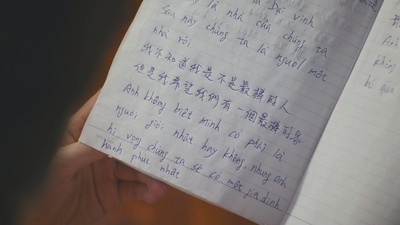 là nhà của Đại Vinh
Sau này chúng ta là người một
nhà rồi
我不知道我是不是最棒的人
但是我希望我們有一個最棒的家
Anh không biết mình có phải là
người giỏi nhất hay không, nhưng anh
hi vọng chúng ta sẽ có một gia đình
hạnh phúc nhất
Anh